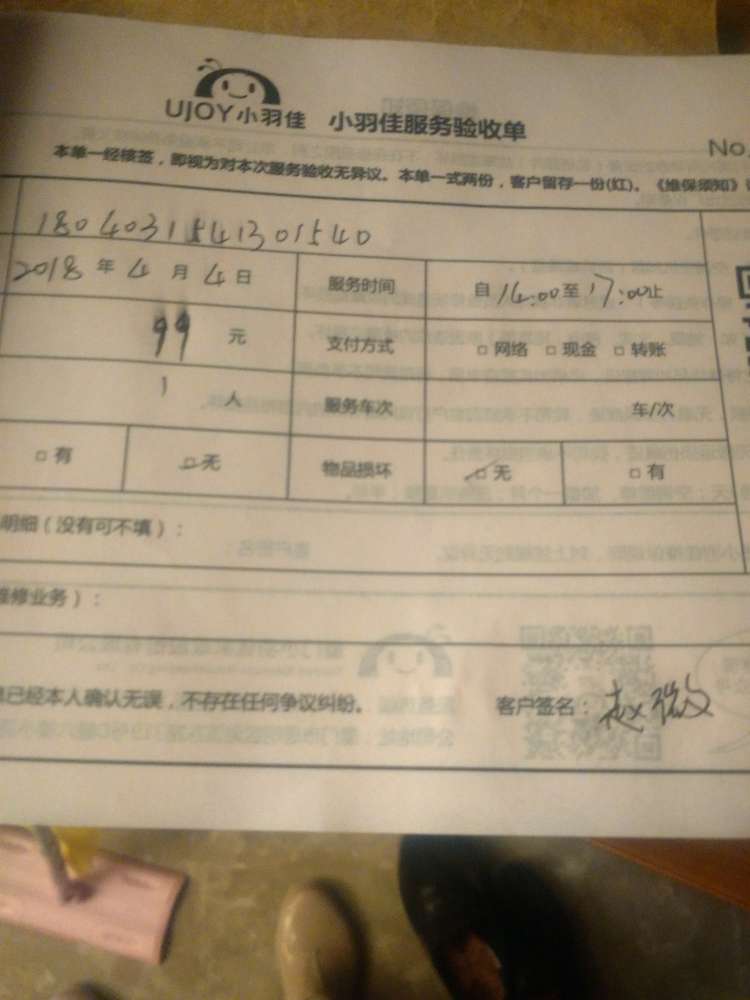 UJOY小羽佳 小羽佳服务验收单
No.
本单一经核签，即视为对本次服务验收无异议。本单一式两份，客户留存一份(红)。《维保须知》
1804031541301540
2018年4月4日 服务时间 自14:00至17:00止
99元 支付方式 □网络 □现金 □转账
1人 服务车次 车/次
□有 □无 物品损坏 □无 □有
明细（没有可不填）：
维修业务）：
已经本人确认无误，不存在任何争议纠纷。 客户签名：赵微